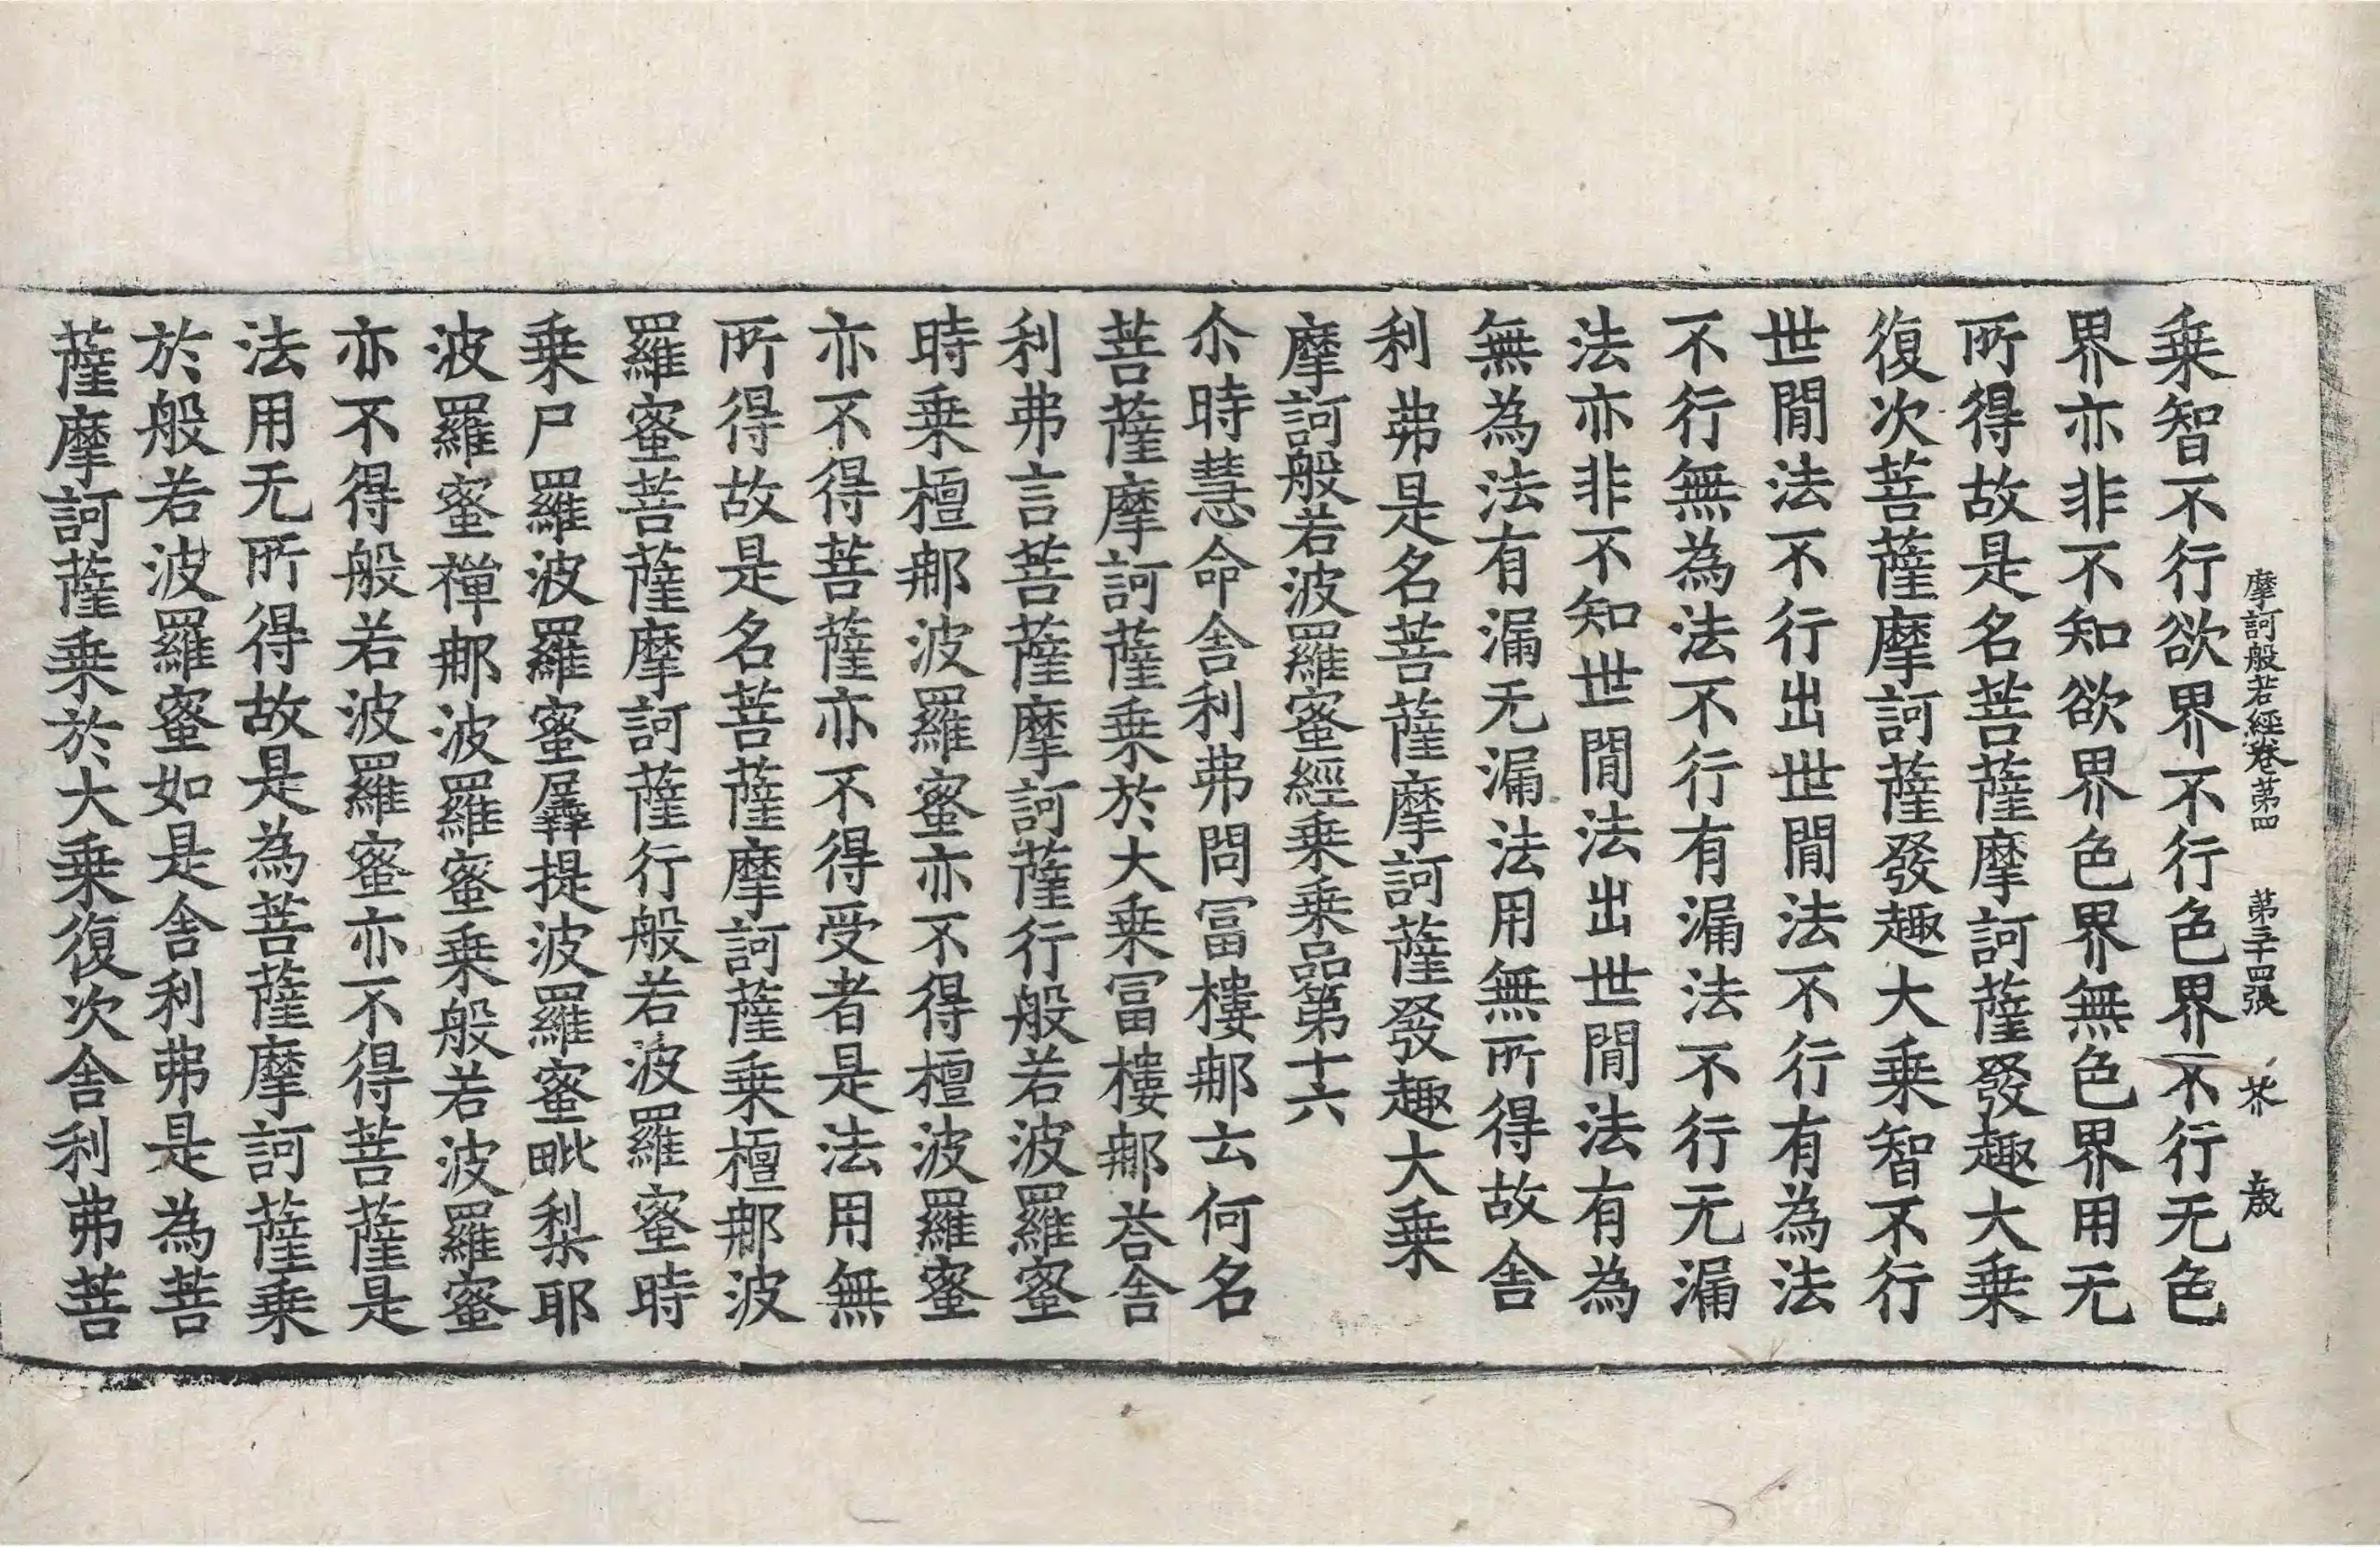 摩訶般若經卷第四　第三十四張　芥　歲
乗智不行欲界不行色界不行无色
界亦非不知欲界色界無色界用无
所得故是名菩薩摩訶薩發趣大乗
復次菩薩摩訶薩發趣大乗智不行
世間法不行出世間法不行有為法
不行無為法不行有漏法不行无漏
法亦非不知世間法出世間法有為
無為法有漏无漏法用無所得故舎
利弗是名菩薩摩訶薩發趣大乗
摩訶般若波羅蜜經乗乗品第十六
尒時慧命舎利弗問冨樓那云何名
菩薩摩訶薩乗於大乗冨樓那荅舎
利弗言菩薩摩訶薩行般若波羅蜜
時乗檀那波羅蜜亦不得檀波羅蜜
亦不得菩薩亦不得受者是法用無
所得故是名菩薩摩訶薩乗檀那波
羅蜜菩薩摩訶薩行般若波羅蜜時
乗尸羅波羅蜜羼提波羅蜜毗梨耶
波羅蜜禪那波羅蜜乗般若波羅蜜
亦不得般若波羅蜜亦不得菩薩是
法用无所得故是為菩薩摩訶薩乗
於般若波羅蜜如是舎利弗是為菩
薩摩訶薩乗於大乗復次舎利弗菩